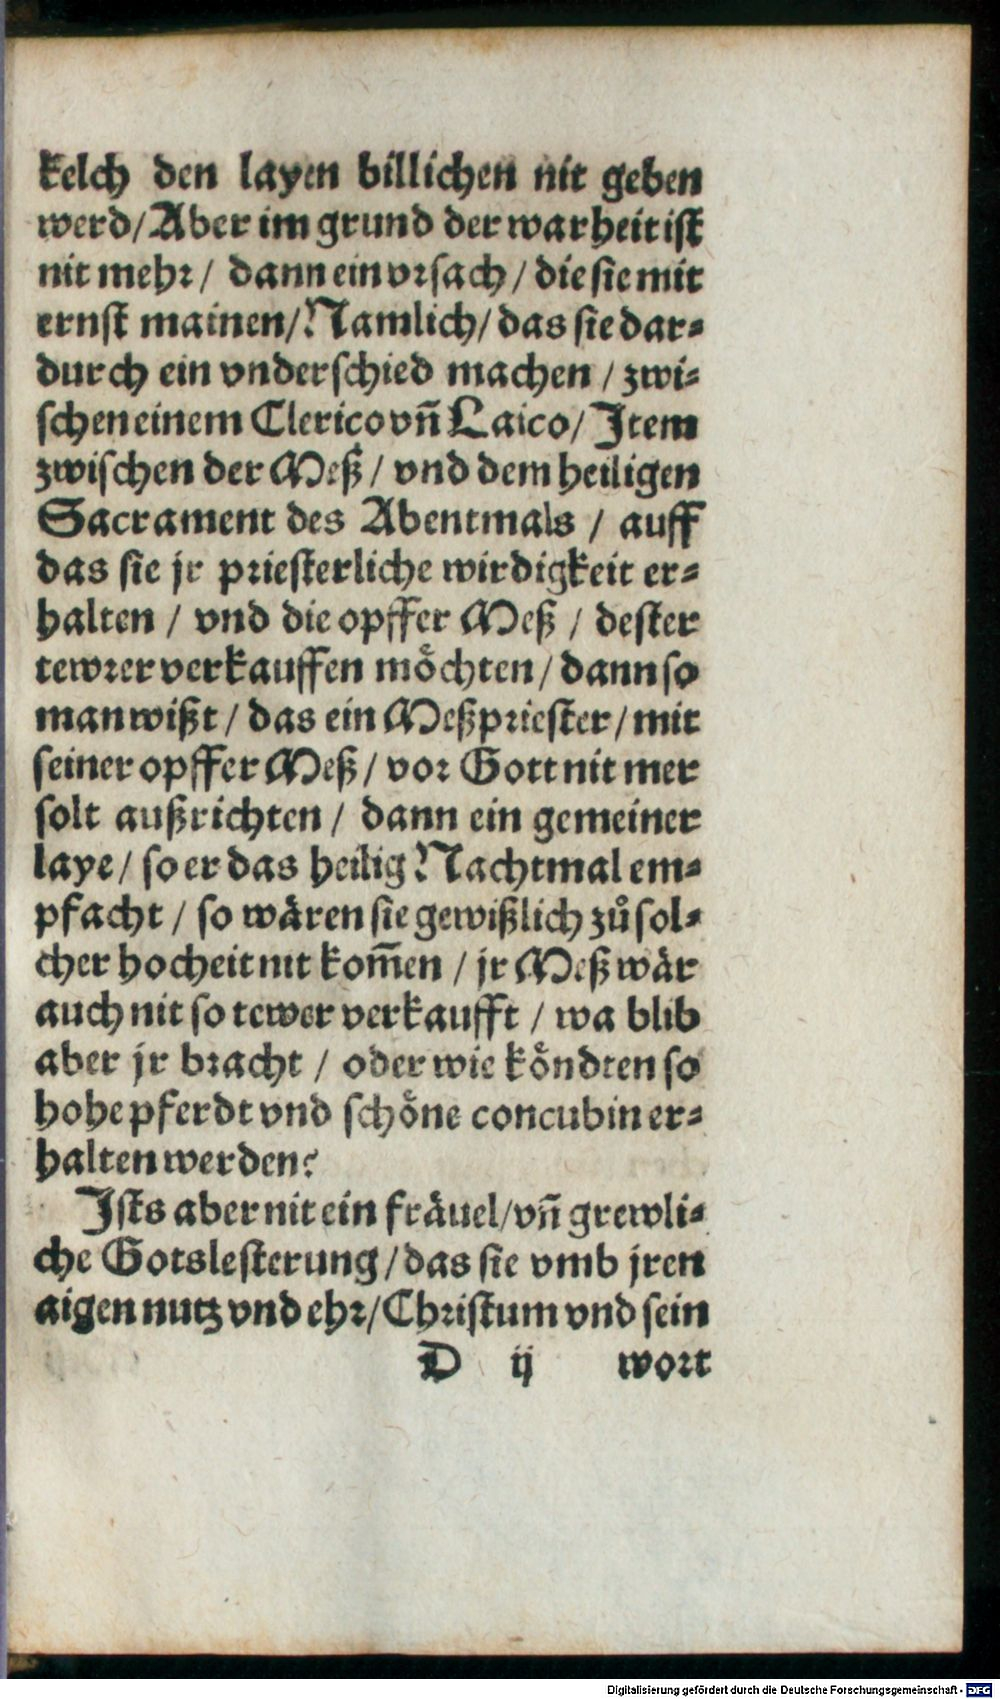 kelch den layen billichen nit geben
werd/Aber im grund der warheit ist
nit mehr/ dann ein vrsach/ die sie mit
ernst mainen/Namlich/das sie dar⸗
durch ein vnderschied machen/ zwi⸗
schen einem Clerico vñ Laico/ Item
zwischen der Meß/ vnd dem heiligen
Sacrament des Abentmals/ auff
das sie jr priesterliche wirdigkeit er⸗
halten/ vnd die opffer Meß/ dester
tewrer verkauffen moͤchten/ dann so
man wißt/ das ein Meßpriester/ mit
seiner opffer Meß/ vor Gott nit mer
solt außrichten/ dann ein gemeiner
laye/ so er das heilig Nachtmal em⸗
pfacht/ so waͤren sie gewißlich zuͦ sol⸗
cher hocheit nit kom̃en/ jr Meß waͤr
auch nit so tewer verkaufft/ wa blib
aber jr bracht/ oder wie koͤndten so
hohe pferdt vnd schoͤne concubin er⸗
halten werden?
Ists aber nit ein fraͤuel/vñ grewli⸗
che Gotslesterung/das sie vmb jren
aigen nutz vnd ehr/Christum vnd sein
D ij wort
Digitalisierung gefördert durch die Deutsche Forschungsgemeinschaft - DFG